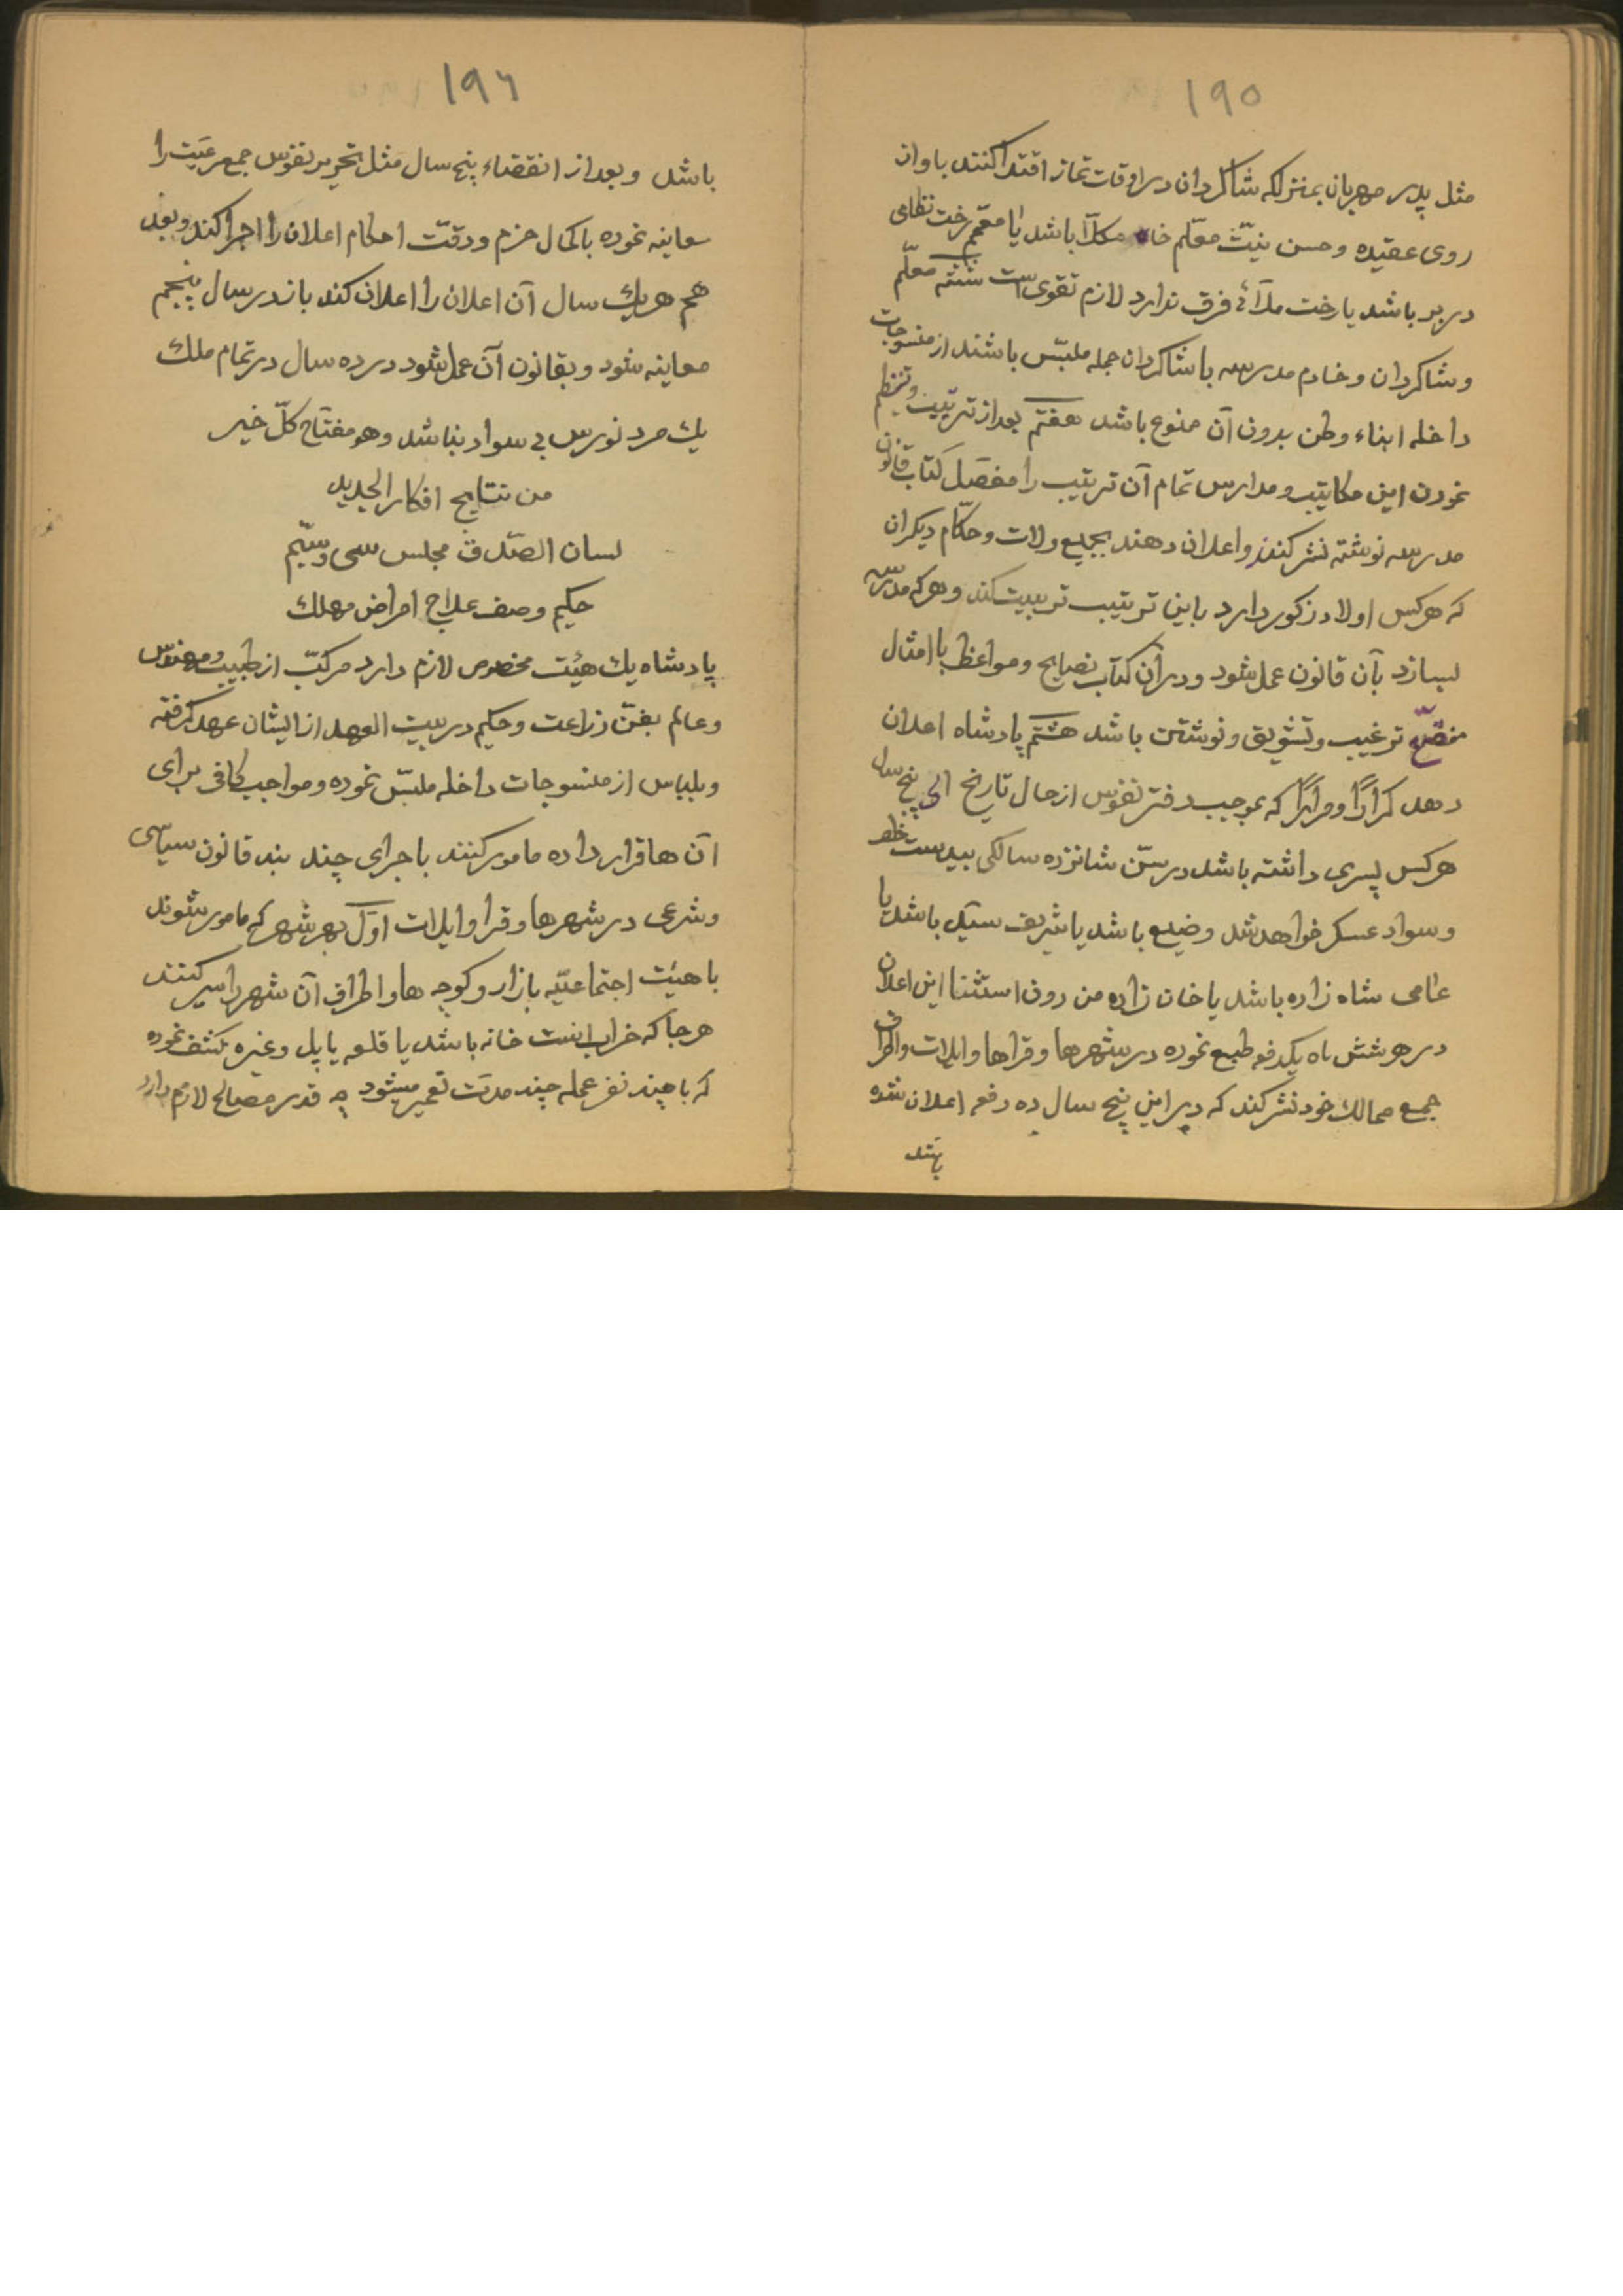 ۱۹۵
مثل پدر مهربان بمنزلکه شاکردان در اوقات نماز اقتدا کنند باو از
روی عقیده و حسن نیّت معلّم خان مکلّا باشد یا معمّم رخت نظامی
در بر باشد یا رخت ملّائی فرق ندارد لازم تقوی است ششم معلّم
و شاکردان و خادم مدرسه با شاکردان جمله ملبّس باشند از منسوجات
داخله ابناء وطن بدون آن ممنوع باشد هفتم بعد از ترتیب و تنظیم
نمودن این مکاتیب و مدارس تمام آن ترتیب را مفصّل کتاب قانون
مدرسه نوشته نشر کنند و اعلان دهند بجمیع ولات و حکّام دیکران
که هر کس اولاد زکور دارد باین ترتیب تربیت کند و هر که مدرسه
بسازد بآن قانون عمل شود و در آن کتاب نصایح و مواعظ با امثال
ترغیب و تشویق و نوشتن باشد هشتم پادشاه اعلان
دهد کراراً و مراراً که بموجب دفتر نفوس از حال تاریخ الی پنج سال
هر کس پسری داشته باشد در سنّ شانزده سالکی بیدست خط
و سواد عسکر خواهد شد وضیع باشد یا شریف سیّد باشد یا
عامی شاه زاده باشد یا خان زاده من دون استثنا این اعلان
در هر شش ماه یکدفعه طبع نموده در شهرها و قراها و ایلات و اطراف
جمع ممالک خود نشر کند که در این پنج سال ده دفعه اعلان شده
۱۹۶
باشد و بعد از انقضاء پنج سال مثل تحریر نفوس جمع رعیّت را
معاینه نموده بالکمال حزم و دقّت احکام اعلان را اجرا کند و بعد
هم هر یک سال آن اعلان را اعلان کند باز در سال پنجم
معاینه شود و بقانون آن عمل شود در ده سال در تمام ملک
یک مرد نورس بی سواد نباشد و هو مفتاح کلّ خیر
من نتایج افکار الجدید
لسان الصّدق مجلس سی و سیّم
حکیم وصف علاج امراض مهلک
پادشاه یک هیئت مخصوص لازم دارد مرکّب از طبیب و مهندس
و عالم بفنّ زراعت و حکیم در بیت العهد از ایشان عهد کرفته
و بلباس از منسوجات داخله ملبّس نموده و مواجب کافی برای
آن ها قرار داده مامور کنند باجرای چند بند قانون سیاسی
و شرعی در شهرها و قرا و ایلات اوّل بهر شهر که مامور شوند
با هیئت اجتماعیّه بازار و کوچه ها و اطراف آن شهر را سیر کنند
هر جا که خراب است خانه باشد یا قلعه یا پل و غیره کشف نموده
که با چند نفر عمله چند مدّت تعمیر میشود چه قدر مصالح لازم دارد